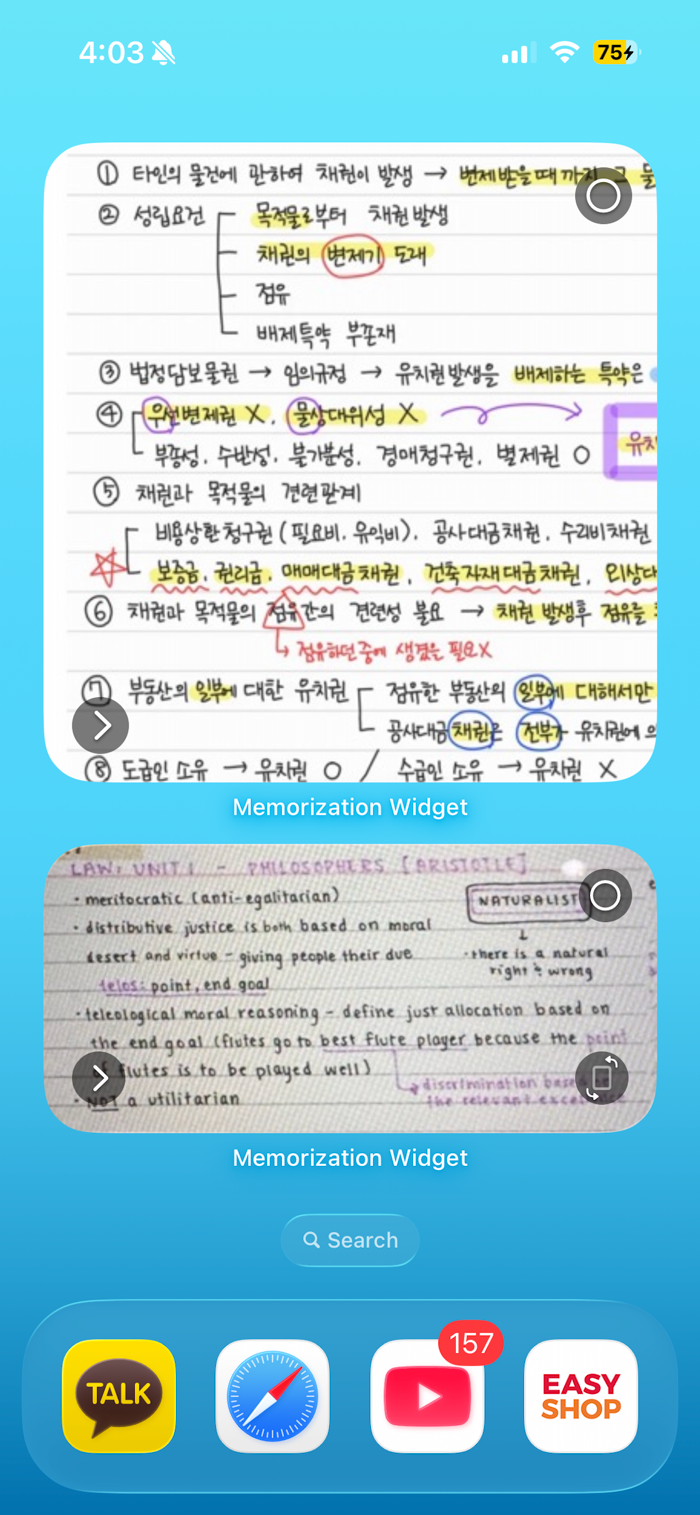 4:03
75
① 타인의 물건에 관하여 채권이 발생 → 변제받을때 까지 그 물
② 성립요건
목적물로부터 채권발생
채권의 변제기 도래
점유
배제특약 부존재
③ 법정담보물권 → 임의규정 → 유치권발생을 배제하는 특약은
④ 우선변제권 X, 물상대위성 X
유치
부종성, 수반성, 불가분성, 경매청구권, 별제권 O
⑤ 채권과 목적물의 견련관계
비용상환청구권(필요비, 유익비), 공사대금채권, 수리비채권
보증금, 권리금, 매매대금채권, 건축자재대금채권, 외상대
⑥ 채권과 목적물의 점유간의 견련성 불요 → 채권 발생후 점유를
↳ 점유하던중에 생겼을 필요X
⑦ 부동산의 일부에 대한 유치권
점유한 부동산의 일부에 대해서만
공사대금채권은 전부가 유치권에 의
⑧ 도급인 소유 → 유치권 O / 수급인 소유 → 유치권 X
Memorization Widget
LAW: UNIT 1 - PHILOSOPHERS [ARISTOTLE]
• meritocratic (anti-egalitarian)
NATURALIST
• distributive justice is both based on moral
desert and virtue - giving people their due
• there is a natural
right & wrong
telos: point, end goal
• teleological moral reasoning - define just allocation based on
the end goal (flutes go to best flute player because the point
of flutes is to be played well)
→ discrimination based
the relevant
• NOT a utilitarian
Memorization Widget
Search
TALK
157
EASY
SHOP